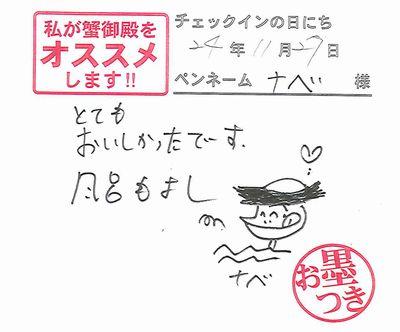 私が蟹御殿を
オススメ
します!!
チェックインの日にち
24年11月27日
ペンネーム ナベ 様
とても
おいしかったです.
風呂もよし
ナベ
お墨つき